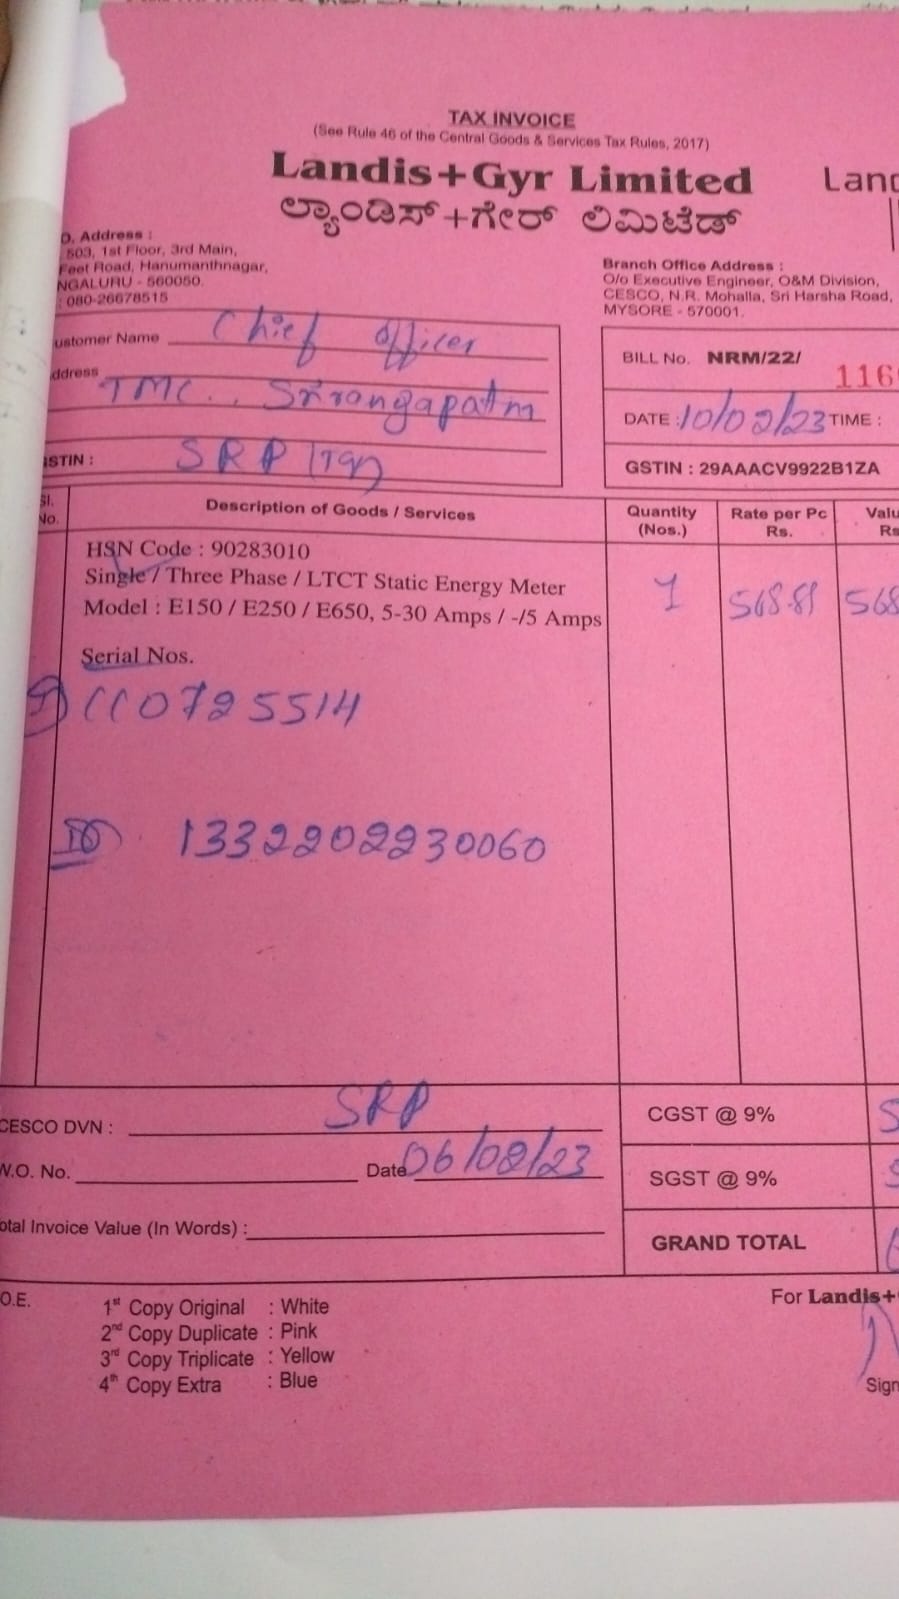 TAX INVOICE
(See Rule 46 of the Central Goods & Services Tax Rules, 2017)
Landis+Gyr Limited
Land
ಲ್ಯಾಂಡಿಸ್+ಗೇರ್ ಲಿಮಿಟೆಡ್
O. Address :
503, 1st Floor, 3rd Main,
Feet Road, Hanumanthnagar,
NGALURU - 560050.
: 080-26678515
Branch Office Address :
O/o Executive Engineer, O&M Division,
CESCO, N.R. Mohalla, Sri Harsha Road,
MYSORE - 570001.
ustomer Name Chief Officer
ddress TMC.. Srirangapatm
STIN : SRP
BILL No. NRM/22/ 116
DATE : 10/02/23 TIME :
GSTIN : 29AAACV9922B1ZA
Sl. No. Description of Goods / Services Quantity (Nos.) Rate per Pc Rs. Valu Rs
HSN Code : 90283010
Single / Three Phase / LTCT Static Energy Meter
Model : E150 / E250 / E650, 5-30 Amps / -/5 Amps
1 568.81 568
Serial Nos.
CC0725514
1332202230060
CESCO DVN : SRP
W.O. No. Date 06/02/23
otal Invoice Value (In Words) :
CGST @ 9%
SGST @ 9%
GRAND TOTAL
O.E.
1st Copy Original : White
2nd Copy Duplicate : Pink
3rd Copy Triplicate : Yellow
4th Copy Extra : Blue
For Landis+
Sign